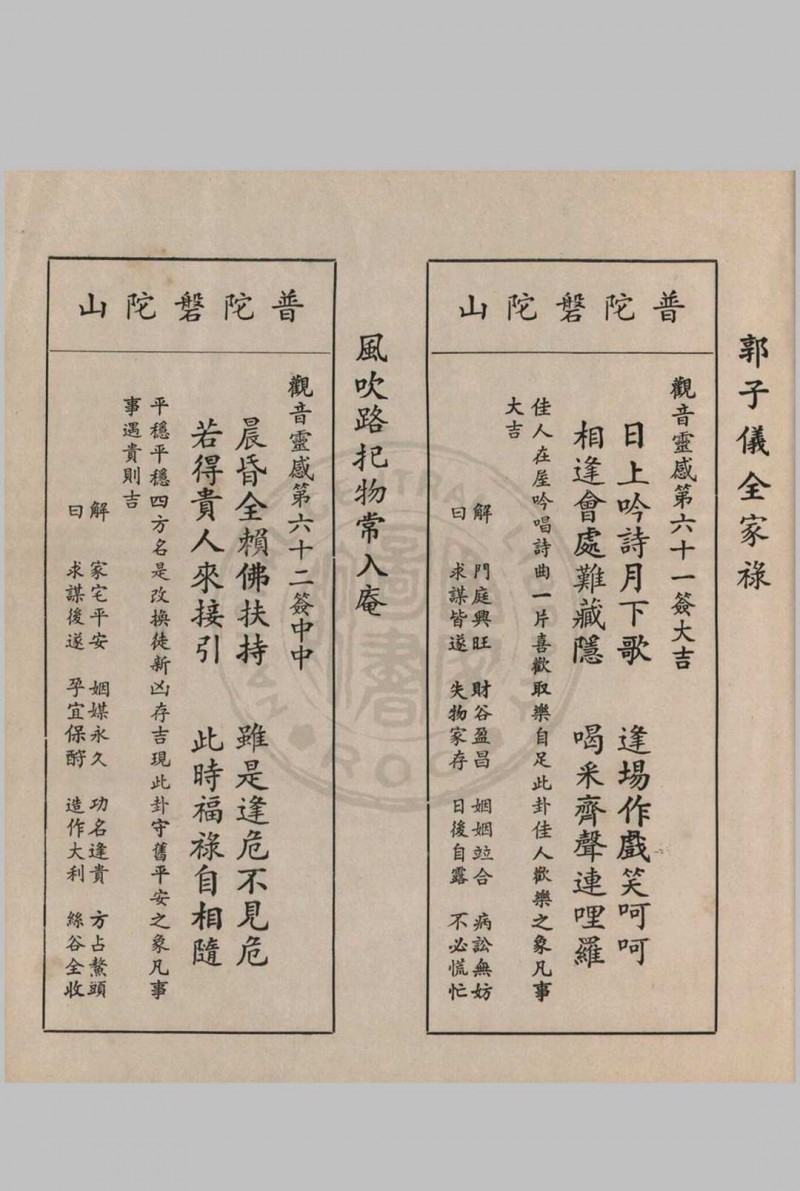 郭子儀全家祿
普陀磐陀山
觀音靈感第六十一簽大吉
日上吟詩月下歌　逢場作戲笑呵呵
相逢會處難藏隱　喝釆齊聲連哩羅
佳人在屋吟唱詩曲一片喜歡取樂自足此卦佳人歡樂之象凡事
大吉
解　門庭興旺　財谷盈昌　姻姻竝合　病訟無妨
曰　求謀皆遂　失物家存　日後自露　不必慌忙
風吹路把物常入庵
普陀磐陀山
觀音靈感第六十二簽中中
晨昏全賴佛扶持　雖是逢危不見危
若得貴人來接引　此時福祿自相隨
平穩平穩四方名是改換徒新凶存吉現此卦守舊平安之象凡事
事遇貴則吉
解　家宅平安　姻媒永久　功名逢貴　方占鰲頭
曰　求謀後遂　孕宜保酧　造作大利　絲谷全收